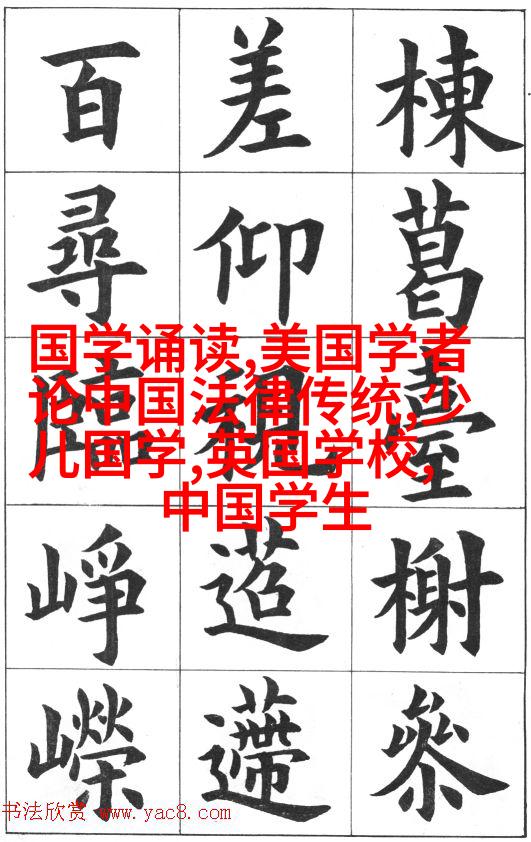 棟葛臺榭叅
差仰
百尋臨崢嶸
国学诵读,美国学者
论中国法律传统,少
儿国学,英国学校,
中国学生
书法欣赏 www.yac8.com